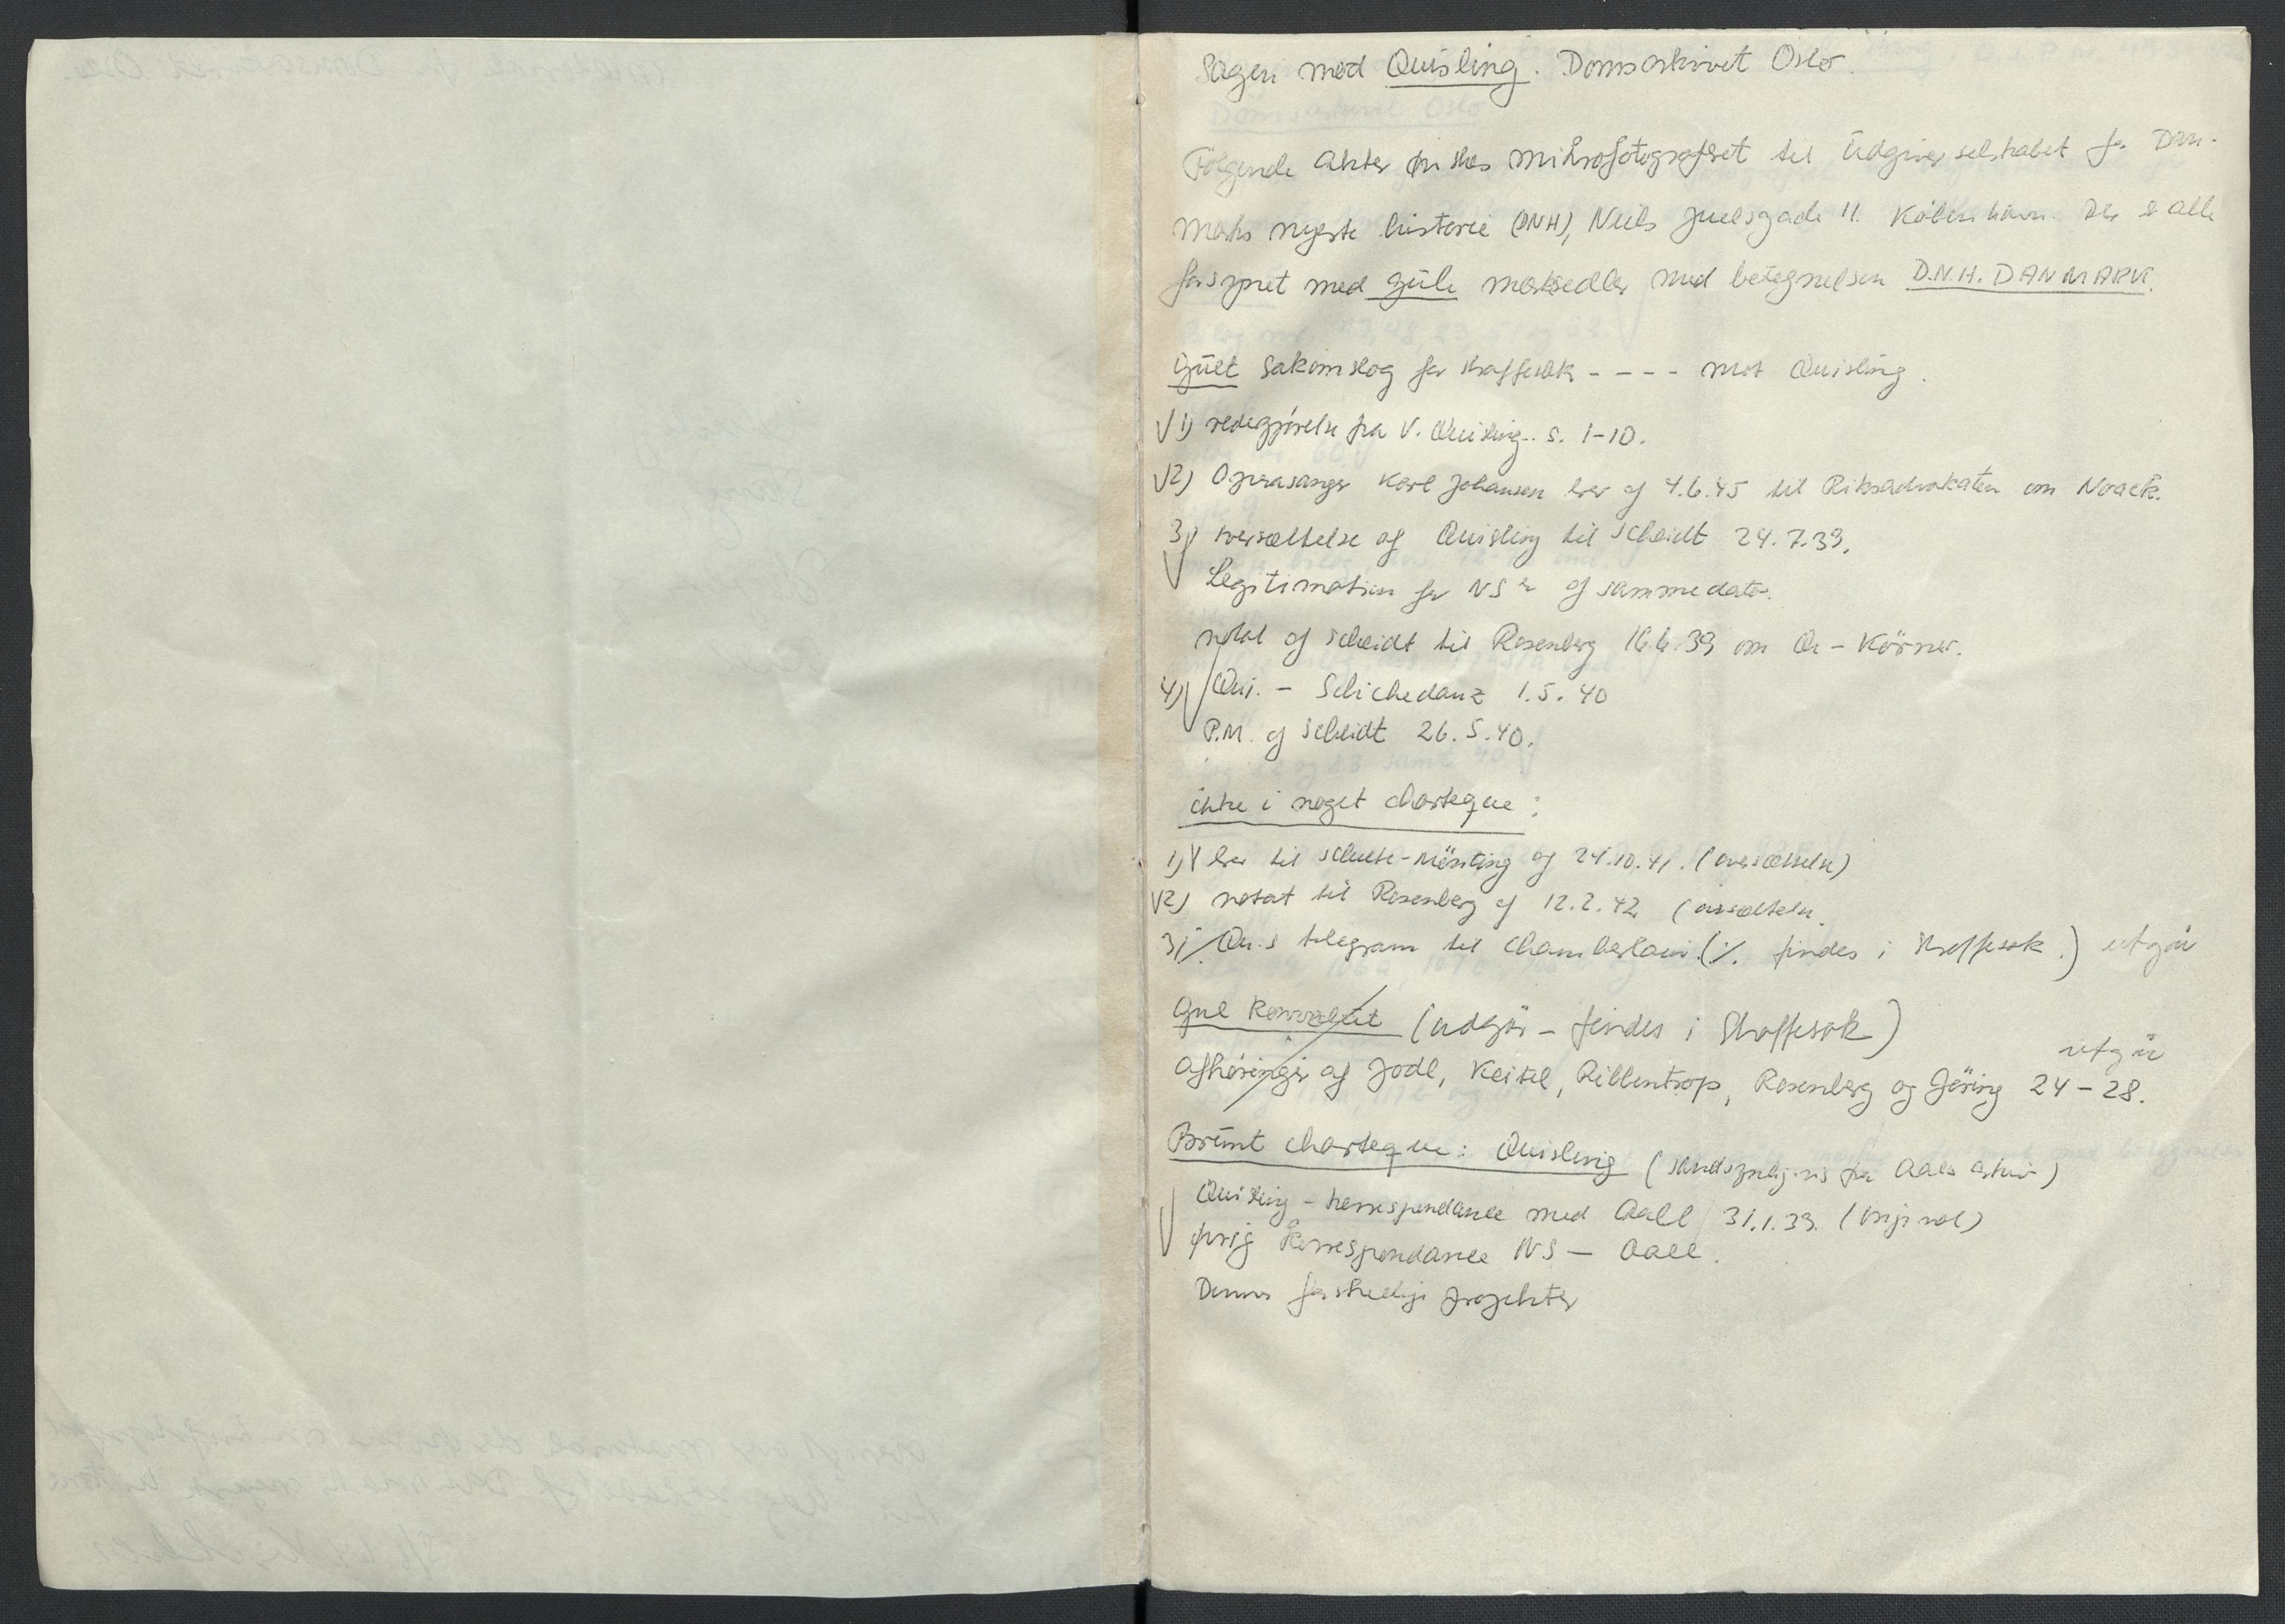 Sagen mod Quisling. Domsarkivet Oslo.
Følgende akter ønskes mikrofotograferet til Udgiverselskabet for Dan-
marks nyeste historie (DNH), Niels Juelsgade 11. København. De er alle
forsynet med gule mærkesedler med betegnelsen D.N.H. DANMARK.
Gült sakomslag for straffesak - - - - mot Quisling.
√1) redegjørelse fra V. Quisling. s. 1-10.
√2) Operasanger Karl Johansen brev af 4.6.45 til Riksadvokaten om Noack.
3) oversættelse af Quisling til Scheidt 24.7.39.
Legitimation for NS af samme dato.
notat af Scheidt til Rosenberg 16.6.39 om Qu - Körner.
4) Qui. - Schickedanz 1.5.40
P.M. af Scheidt 26.5.40.
ikke i noget charteque:
1) √ brev til Schulte-Mönting af 24.10.41. (oversættelse)
√2) notat til Rosenberg af 12.2.42 (oversættelse.
3) Qu.s telegram til Chamberlain. (./. findes i Straffesak.) utgår
Gul konvolut (udgår - findes i Straffesak)
utgår
Afhøringer af Jodl, Keitel, Ribbentrop, Rosenberg og Göring 24-28.
Brünt charteque: Quisling (sandsynligvis fra Aalls arkiv)
Quisling - korrespondance med Aall 31.1.39. (original)
øvrig korrespondance NS - Aall.
Dennes forskellige projekter